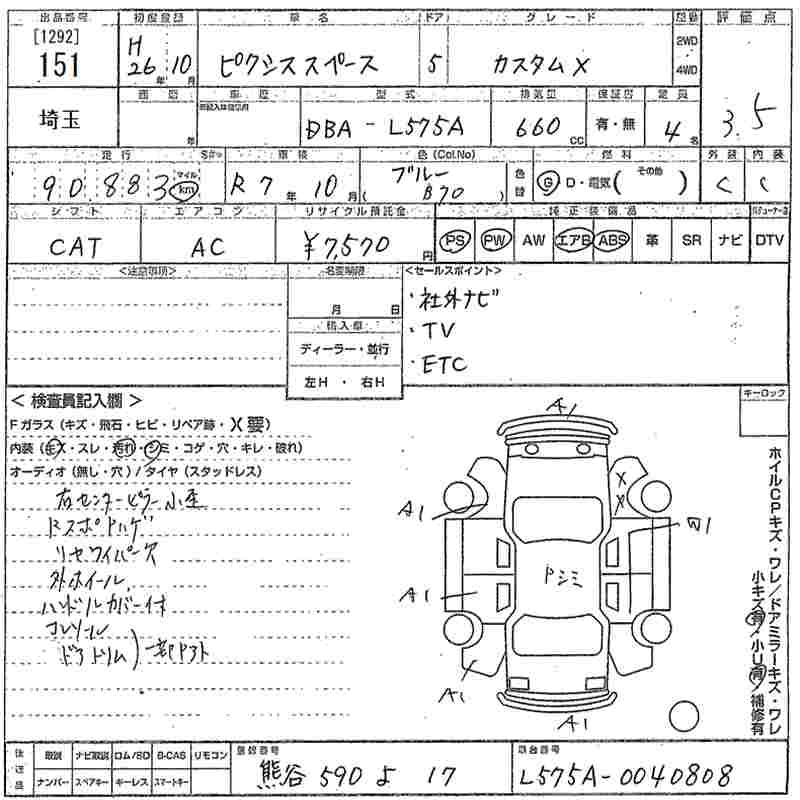 出品番号 初度登録 車名 ドア グレード 駆動 評価点
[1292]
151 H26年10月 ピクシススペース 5 カスタムX 2WD 4WD 3.5
埼玉 車歴 型式 排気量 保証書 定員
年 DBA-L575A 660cc 有・無 4名
走行 車検 色(Col.No) 燃料 外装 内装
90,883 マイル km R7年10月 ブルー B70 色替 G D・電気( その他 ) C C
シフト エアコン リサイクル預託金 純正装備品
CAT AC ¥7,570円 PS PW AW エアB ABS 革 SR ナビ DTV
<注意事項> 名変期限 <セールスポイント>
月 日
・社外ナビ
輸入車
・TV
ディーラー・並行
・ETC
左H・右H
<検査員記入欄> キーロック
Fガラス(キズ・飛石・ヒビ・リペア跡・X要)
内装(キズ・スレ・汚れ・シミ・コゲ・穴・キレ・破れ)
オーディオ(無し・穴)/タイヤ(スタッドレス)
右センターピラー小歪
RスポDハゲ
リヤワイパー穴
外ホイール
ハンドルカバー付
コンソール
ドアトリム)一部
A1
A1 X X W1
A1 Pシミ
A1
A1
ホイルCPキズ・ワレ/ドアミラーキズ・ワレ
小キズ有/小U有/補修有
後送品 取説 ナビ取説 ロム/SD B-CAS リモコン 登録番号 車台番号
ナンバー スペアキー キーレス スマートキー 熊谷 590 よ 17 L575A-0040808